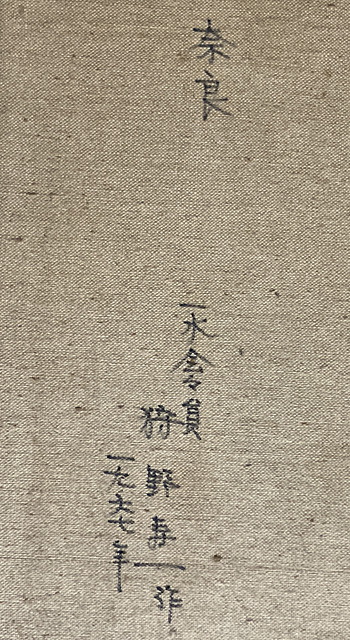 奈良
一水会々員
狩野寿一作
一九六七年